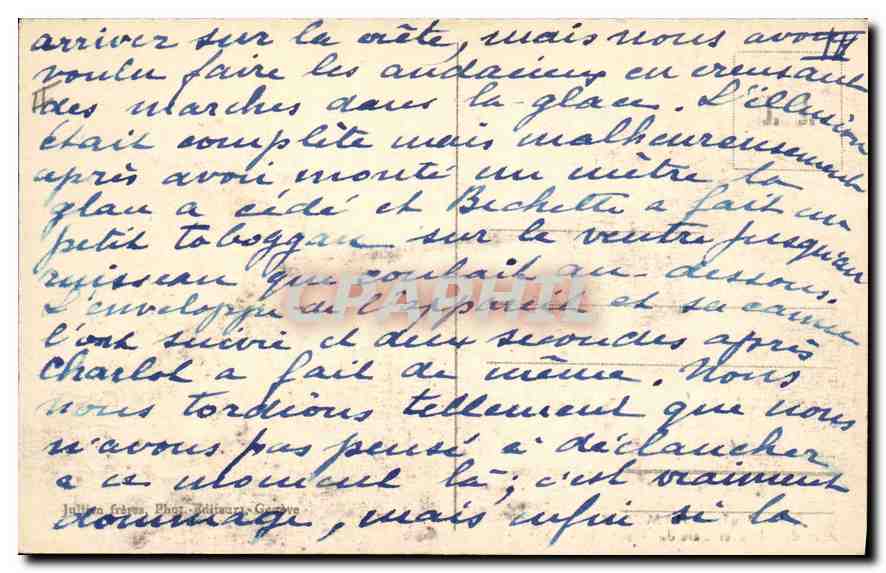 arriver sur la crête, mais nous avons
IV
voulu faire les audacieux en creusant
des marches dans la glace. L'illusion
était complète mais malheureusement
après avoir monté un mètre la
glace a cédé et Bichette a fait un
petit toboggan sur le ventre jusqu'au
ruisseau que coulait au-dessous.
L'enveloppe de l'appareil et sa canne
l'ont suivie et deux secondes après
Charlot a fait de même. Nous
nous tordions tellement que nous
n'avons pas pensé à déclancher
à ce moment là; c'est vraiment
dommage, mais enfin si la
Jullien frères, Phot.-Editeurs, Genève
CPAPHIL